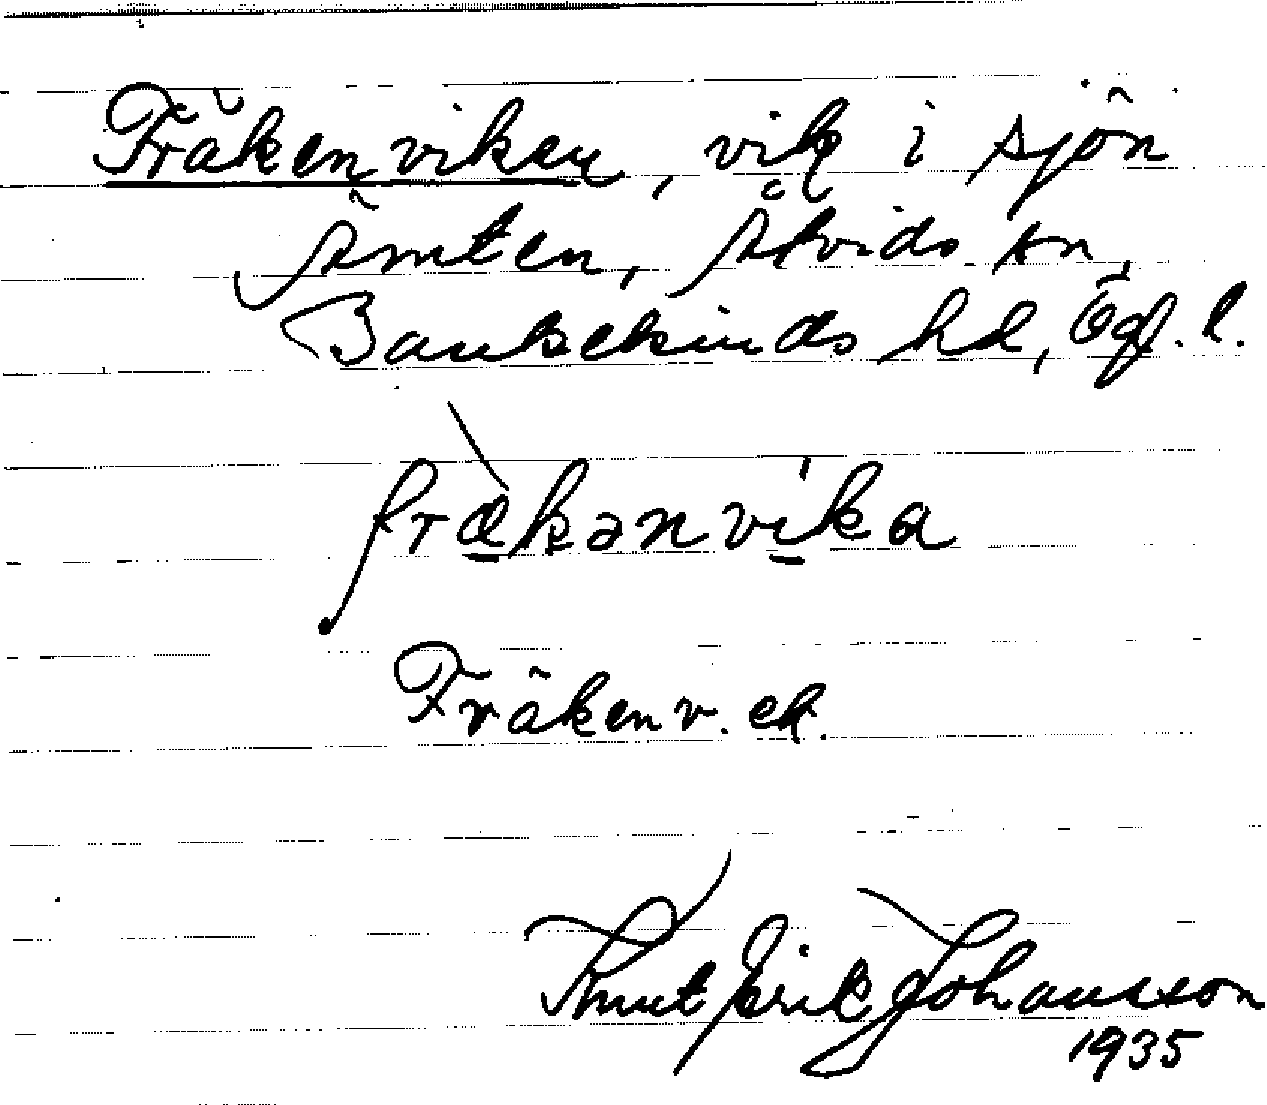 Fräkenviken, vik i sjön
Ämten, Åtvids sn,
Bankekinds hd, Ögl. l.
frækənvika
Fräkenv. ek.
Knut Erik Johansson
1935